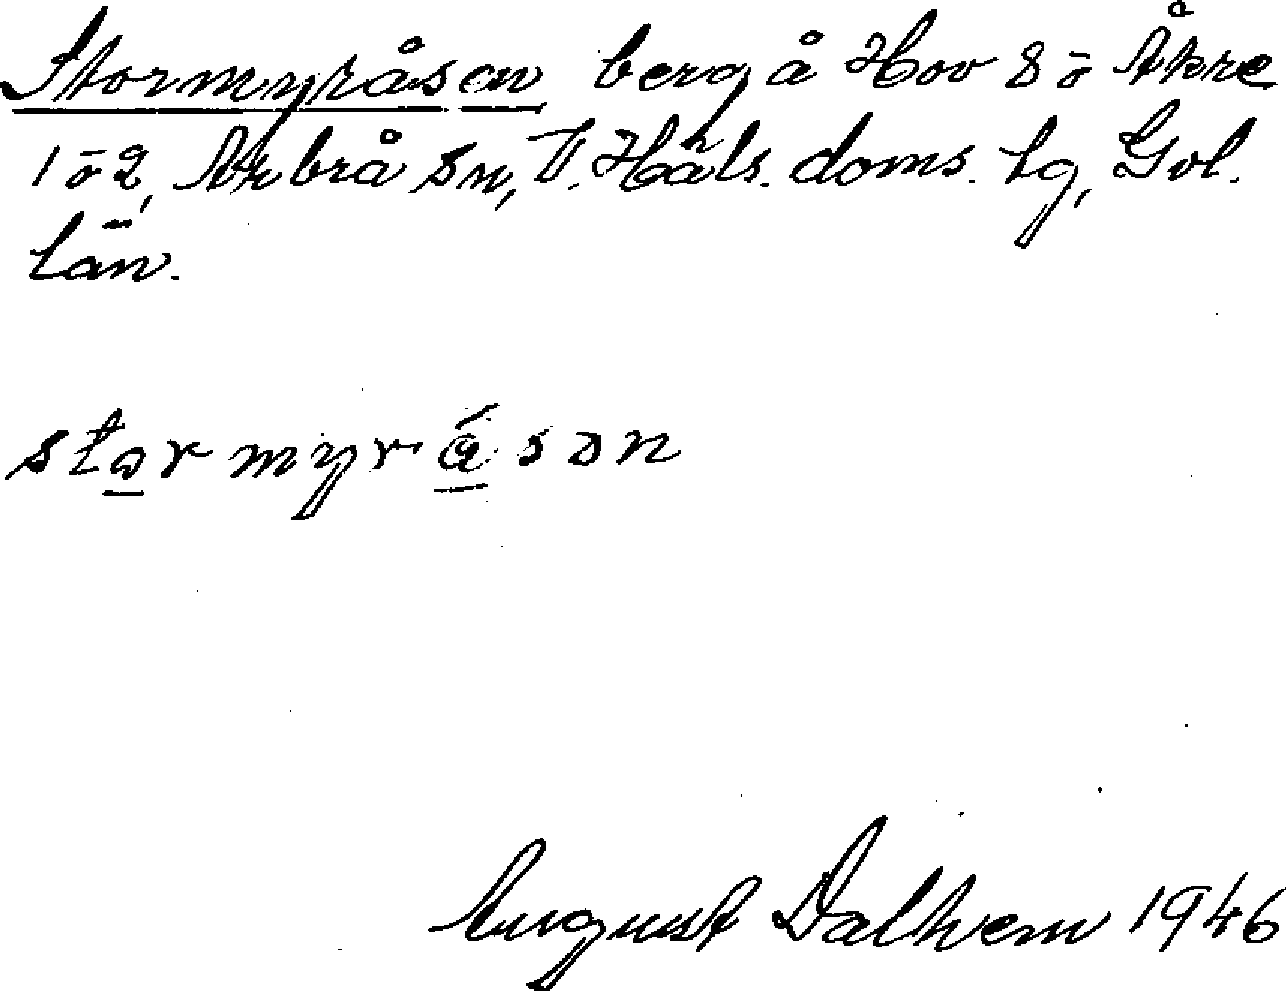 Stormyråsen berg å Hov 8 ö Åkre
1 ö 2, Arbrå sn, V. Häls. doms. lg, Gvl.
län.
stormyråsən
August Dalhem 1946